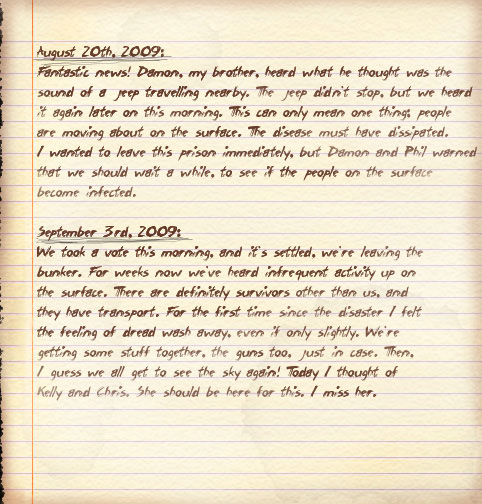 August 20th, 2009:
Fantastic news! Damon, my brother, heard what he thought was the
sound of a jeep travelling nearby. The jeep didn't stop, but we heard
it again later on this morning. This can only mean one thing; people
are moving about on the surface. The disease must have dissipated.
I wanted to leave this prison immediately, but Damon and Phil warned
that we should wait a while, to see if the people on the surface
become infected.
September 3rd, 2009:
We took a vote this morning, and it's settled, we're leaving the
bunker. For weeks now we've heard infrequent activity up on
the surface. There are definitely survivors other than us, and
they have transport. For the first time since the disaster I felt
the feeling of dread wash away, even if only slightly. We're
getting some stuff together, the guns too, just in case. Then,
I guess we all get to see the sky again! Today I thought of
Kelly and Chris. She should be here for this. I miss her.